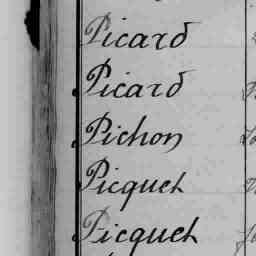 Picard
Picard
Pichon
Picquet
Picquet